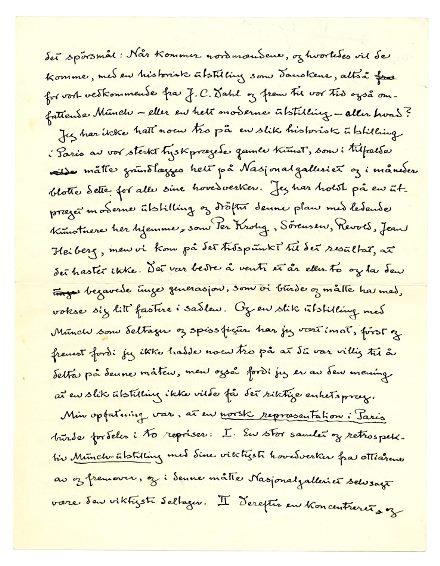 det spörsmål: Når kommer nordmændene, og hvorledes vil de
komme, med en historisk utstilling som Danskene, altså
for vort vedkommende fra J. C. Dahl og frem til vor tid også om-
fattende Munch – eller en helt moderne utstilling – eller hvad?
Jeg har ikke hatt noen tro på en slik historisk utstilling
i Paris av vor sterkt tyskprægede gamle kunst, som i tilfælde
måtte grundlægges helt på Nasjonalgalleriet og i måneder
blotte dette for alle sine hovedverker. Jeg har holdt på en ut-
præget moderne utstilling og dröftet denne plan med ledende
kunstnere her hjemme, som Per Krohg, Sörensen, Revold, Jean
Heiberg, men vi kom på det tidspunkt til det resultat, at
det haster ikke. Det var bedre å vente et år eller to og la den
begavede unge generasjon, som vi burde og måtte ha med,
vokse sig litt fastere i sadlen. Og en slik utstilling med
Munch som deltager og spissfigur har jeg vært imot, först og
fremst fordi jeg ikke hadde noen tro på at du var villig til å
delta på denne måten, men også fordi jeg er av den mening
at en slik utstilling ikke vilde få det riktige enhetspreg.
Min opfatning var, at en norsk representation i Paris
burde fordeles i to repriser: I. En stor samlet og retrospek-
tiv Munch-utstilling med dine viktigste hovedverker fra ottiårene
av og fremover, og i denne måtte Nasjonalgalleriet selvsagt
være den viktigste deltager. II Derefter en koncentreret, og